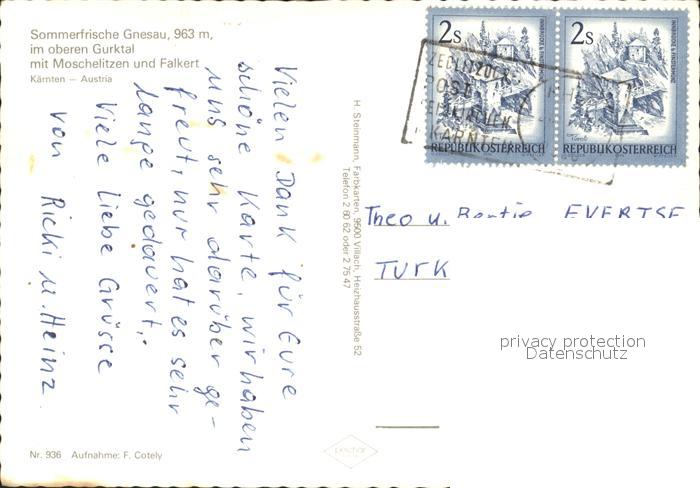 Sommerfrische Gnesau, 963 m,
im oberen Gurktal
mit Moschelitzen und Falkert
Kärnten — Austria
Vielen Dank für Eure
schöne Karte, wir haben
uns sehr darüber ge-
freut, nur hat es sehr
lange gedauert.
Viele liebe Grüsse
von Ricki u. Heinz
Nr. 936 Aufnahme: F. Cotely
H. Steinmann, Farbkarten, 9500 Villach, Heizhausstraße 52
Telefon 2 80 62 oder 2 75 47
2s
REPUBLIK ÖSTERREICH
2s
REPUBLIK ÖSTERREICH
POST
KÄRNTEN
Theo u. EVERTSE
TURK
privacy protection
Datenschutz